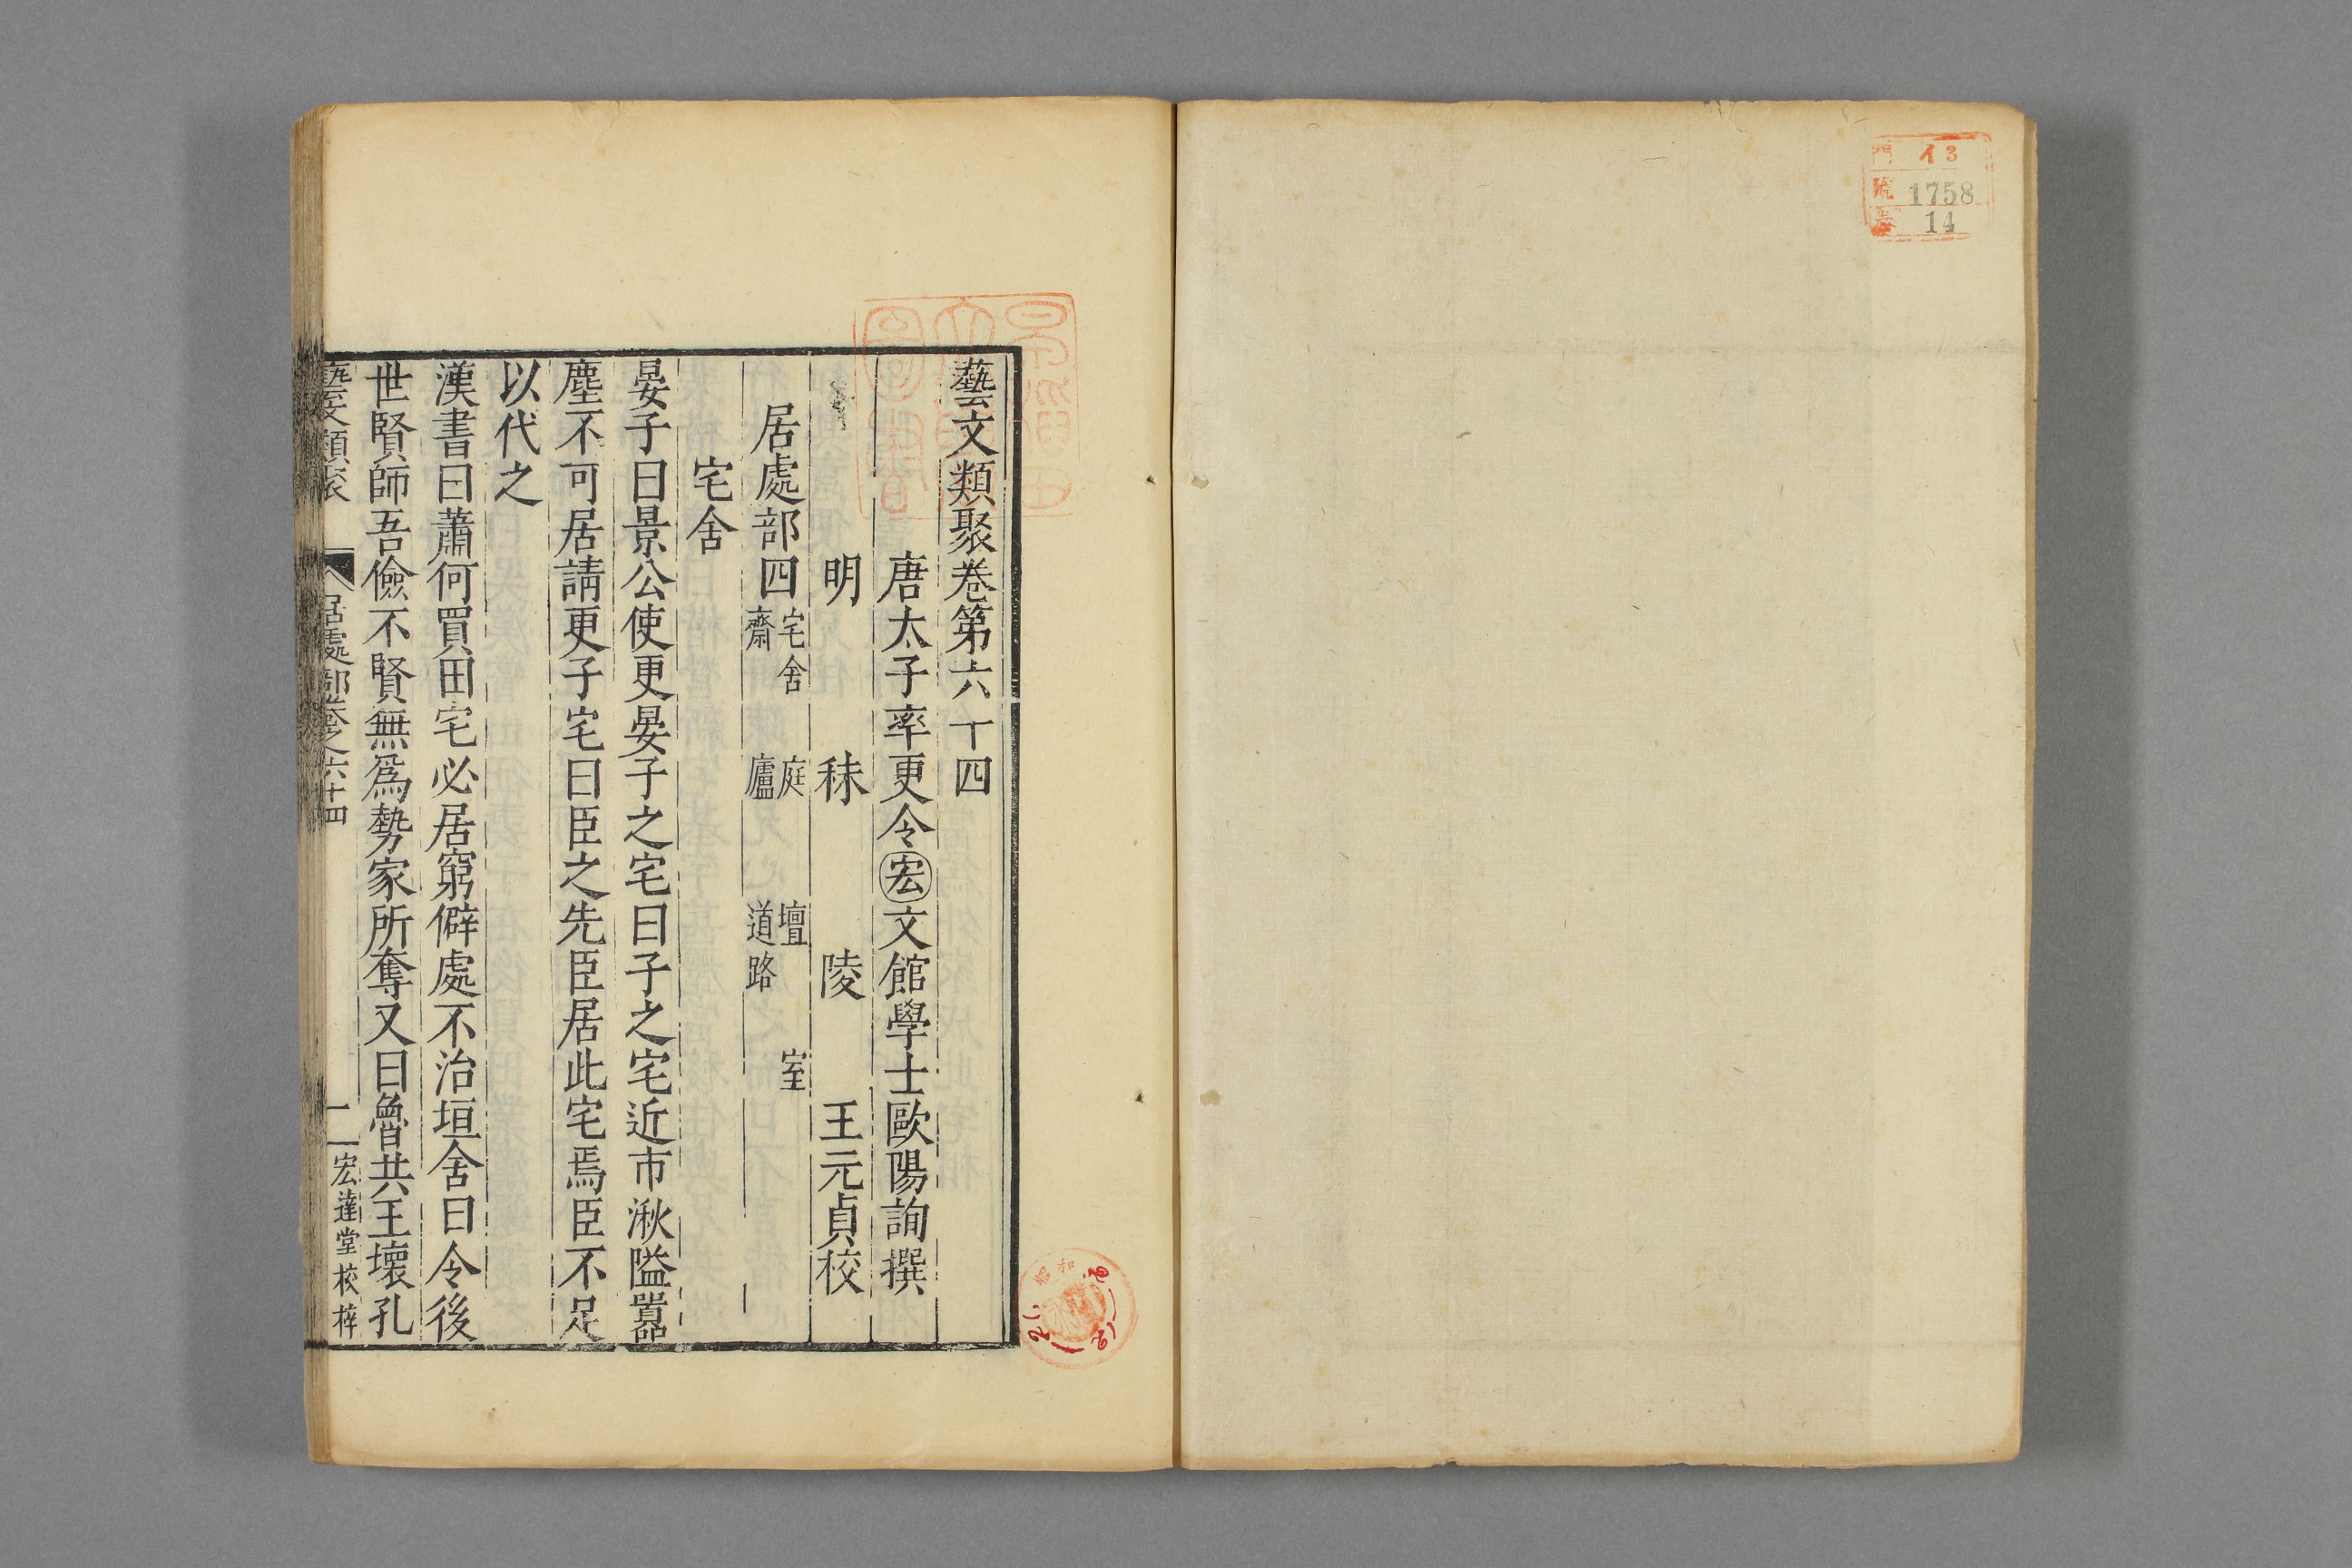 門 イ3
號 1758
卷 14
藝文類聚卷第六十四
唐太子率更令宏文館學士歐陽詢撰
明 秣 陵 王元貞校
居處部四 宅舍 庭 壇 室
齋 廬 道路
宅舍
晏子曰景公使更晏子之宅曰子之宅近市湫隘嚣
塵不可居請更子宅曰臣之先臣居此宅焉臣不足
以代之
漢書曰蕭何買田宅必居窮僻處不治垣舍曰令後
世賢師吾儉不賢無爲勢家所奪又曰魯共王壞孔
藝文類聚 居處部卷之六十四 一 宏達堂校梓